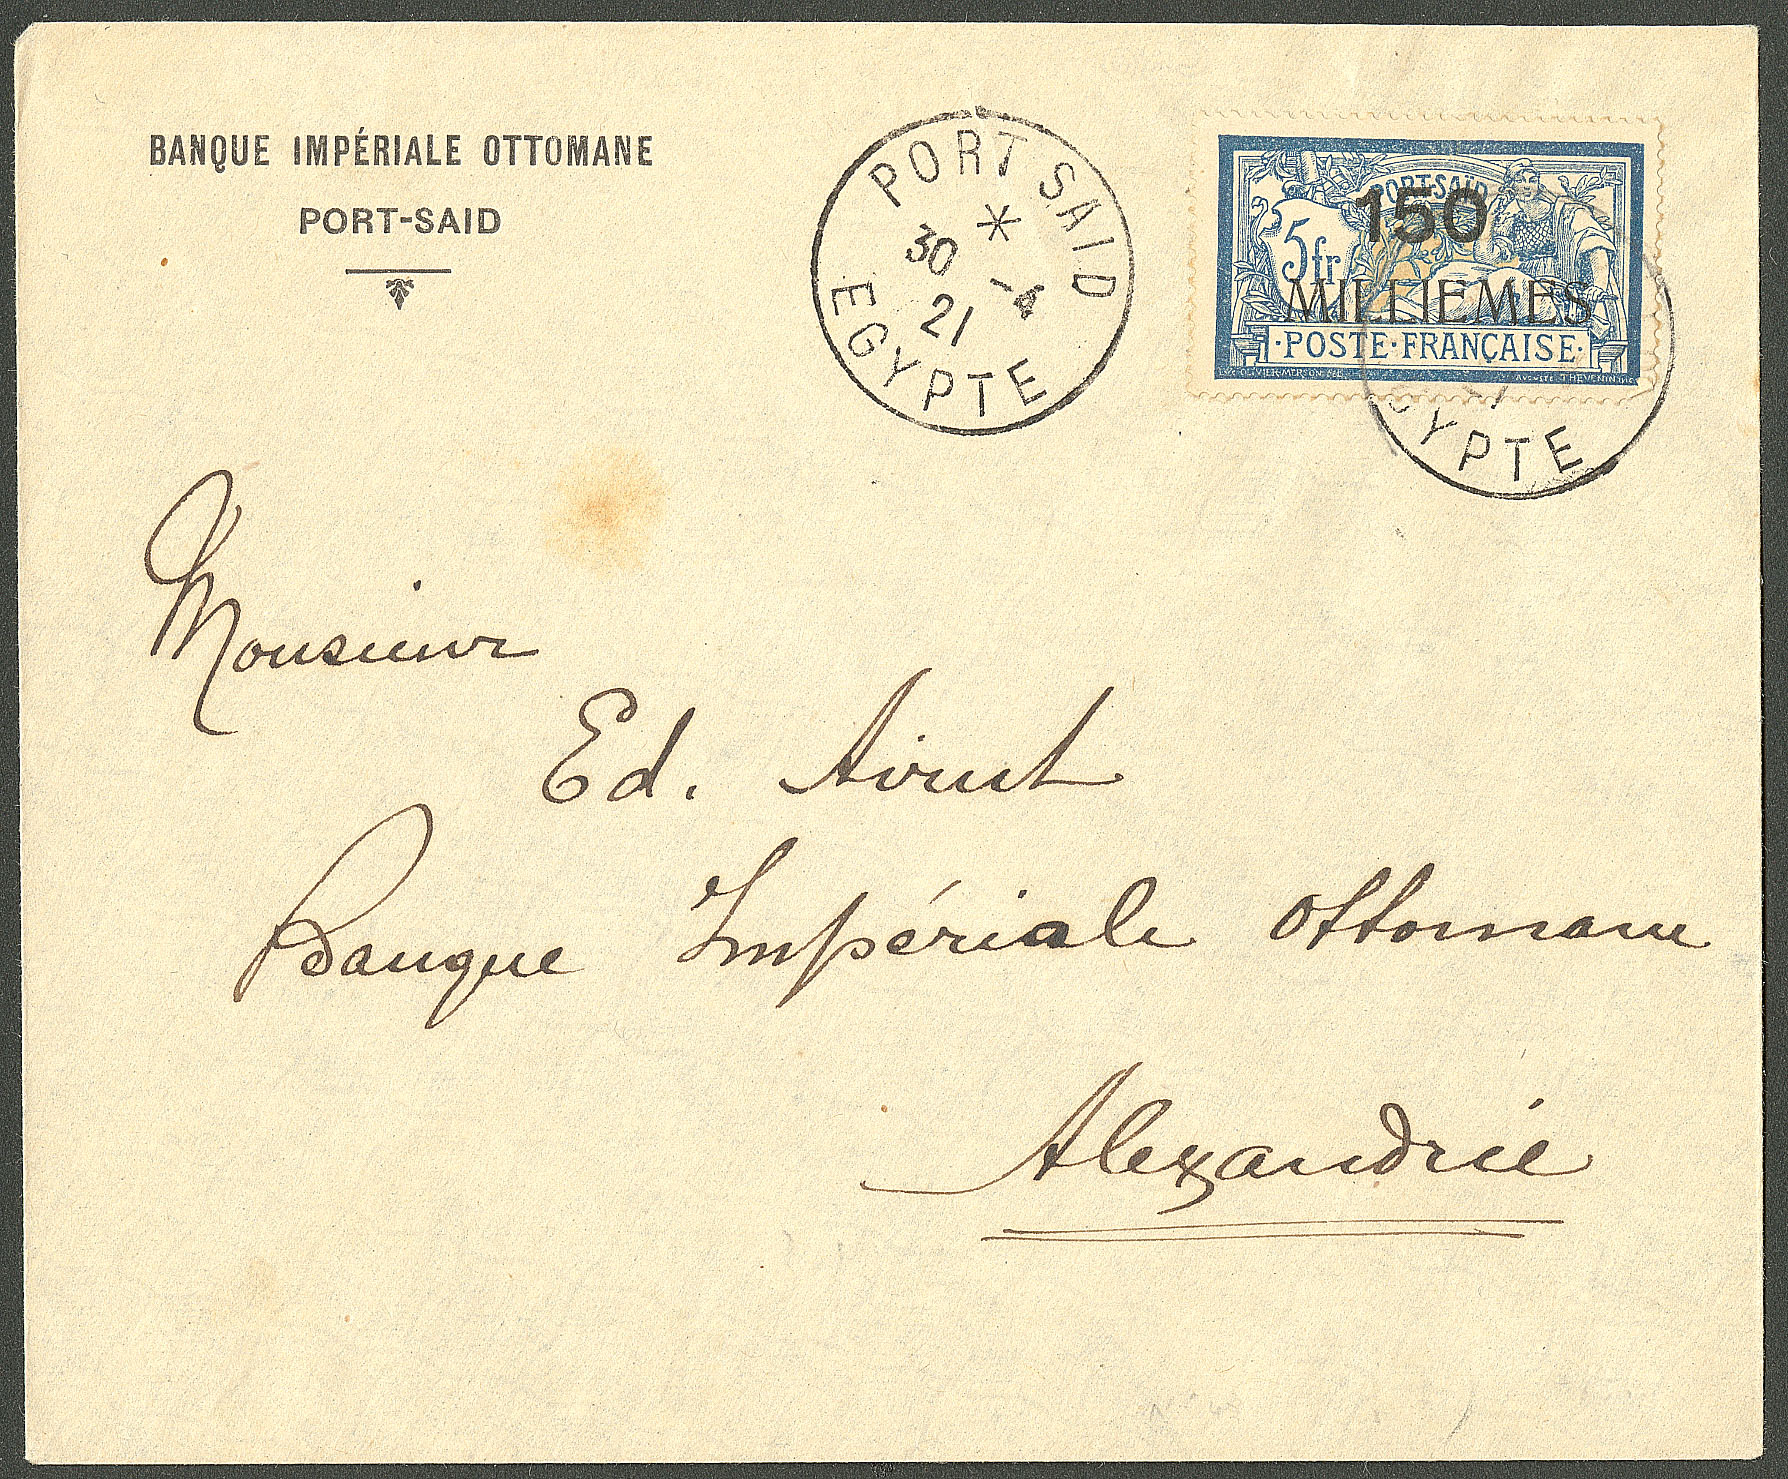 BANQUE IMPÉRIALE OTTOMANE
PORT-SAID
PORT SAID
*
30 -4
21
EGYPTE
PORT-SAÏD
150
5 fr
MILLIEMES
·POSTE·FRANÇAISE·
LUC-OLIVIER-MERSON DEL. AUGUSTE THEVENIN SC.
YPTE
Monsieur
Ed.
Banque Impériale Ottomane
Alexandrie